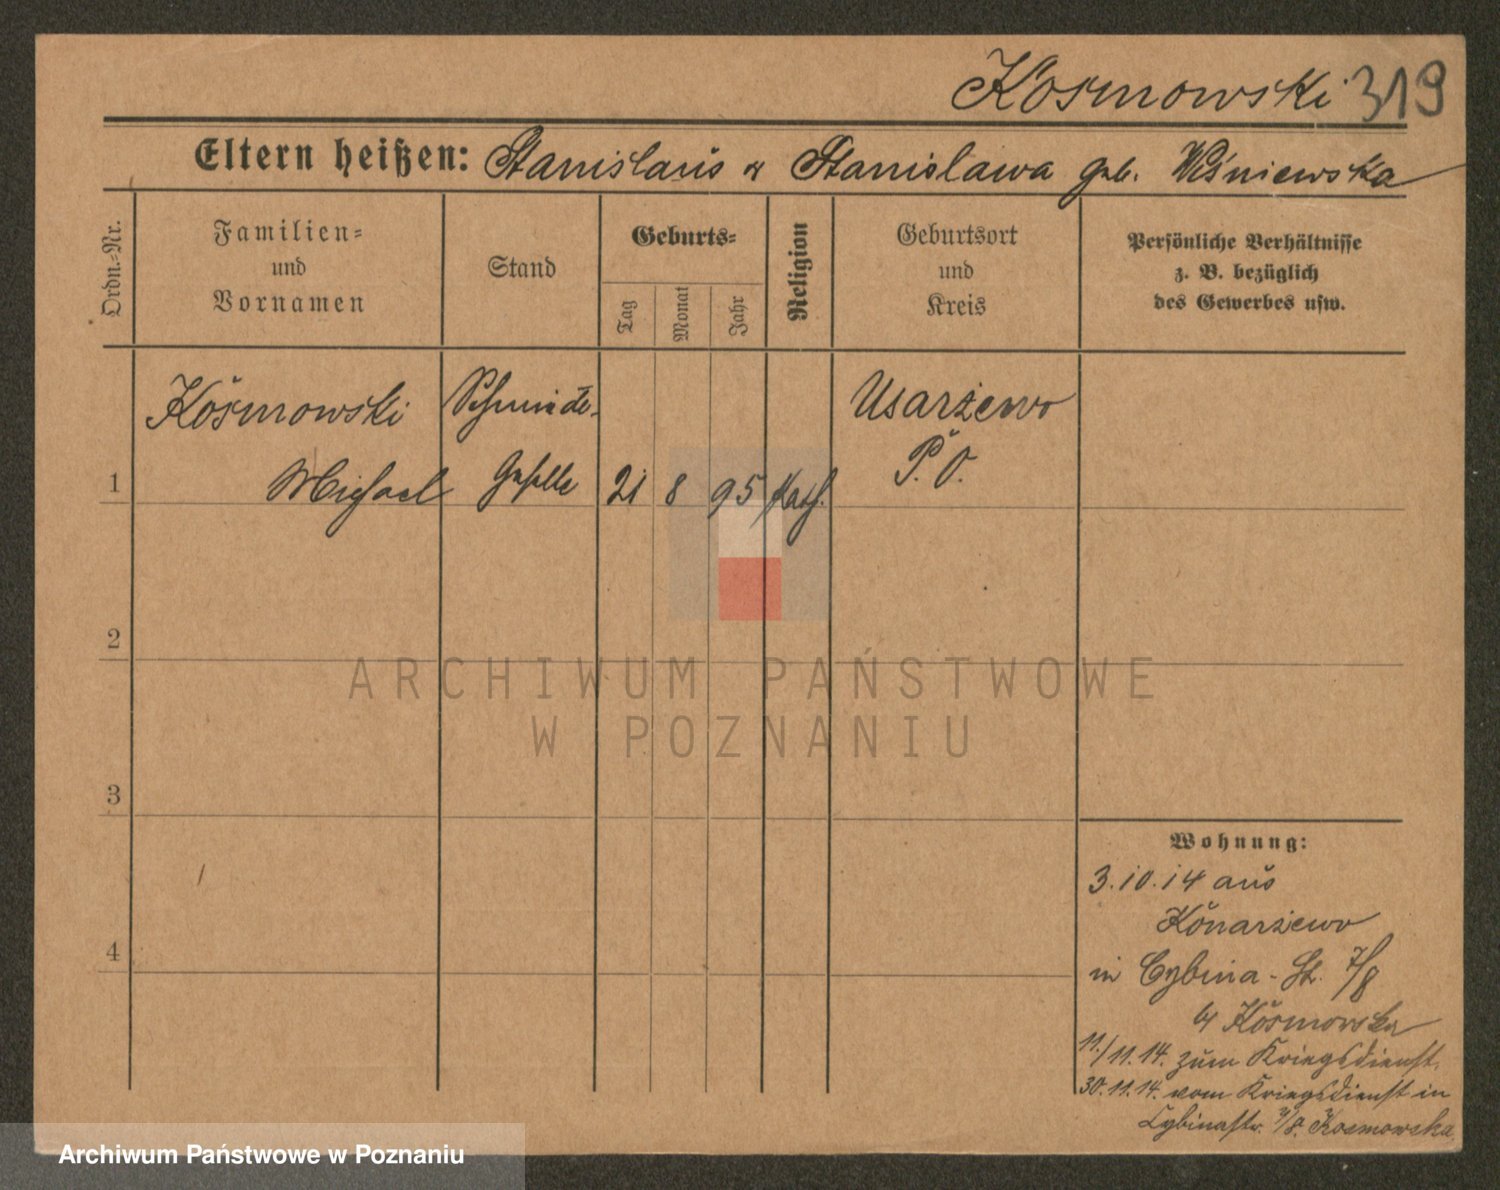 Kosmowski 319
Eltern heißen: Stanislaus u Stanislawa geb. Wiśniewska
Ordn.-Nr.
Familien-
und
Vornamen
Stand
Geburts-
Tag
Monat
Jahr
Religion
Geburtsort
und
Kreis
Persönliche Verhältnisse
z. B. bezüglich
des Gewerbes usw.
Kosmowski Schmiede- Usarzewo
1 Michael Geselle 21 8 95 Kath. P. O.
2
3
4
Wohnung:
3.10.14 aus
Konarzewo
in Cybina-St. 7/8
b/ Kosmowska
11./11.14. zum Kriegsdienst.
30.11.14. vom Kriegsdienst in
Cybinastr. 7/8. Kosmowska
ARCHIWUM PAŃSTWOWE
W POZNANIU
Archiwum Państwowe w Poznaniu